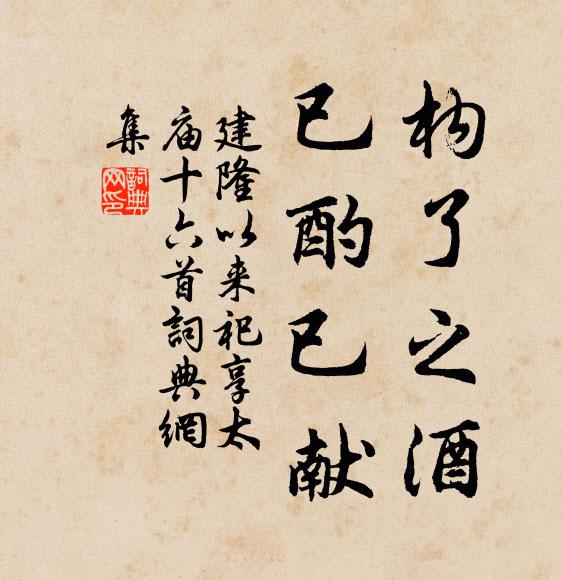 构了之酒
已酌已献
建隆以来祀享太
庙十六首詞典網
集
詞典網印